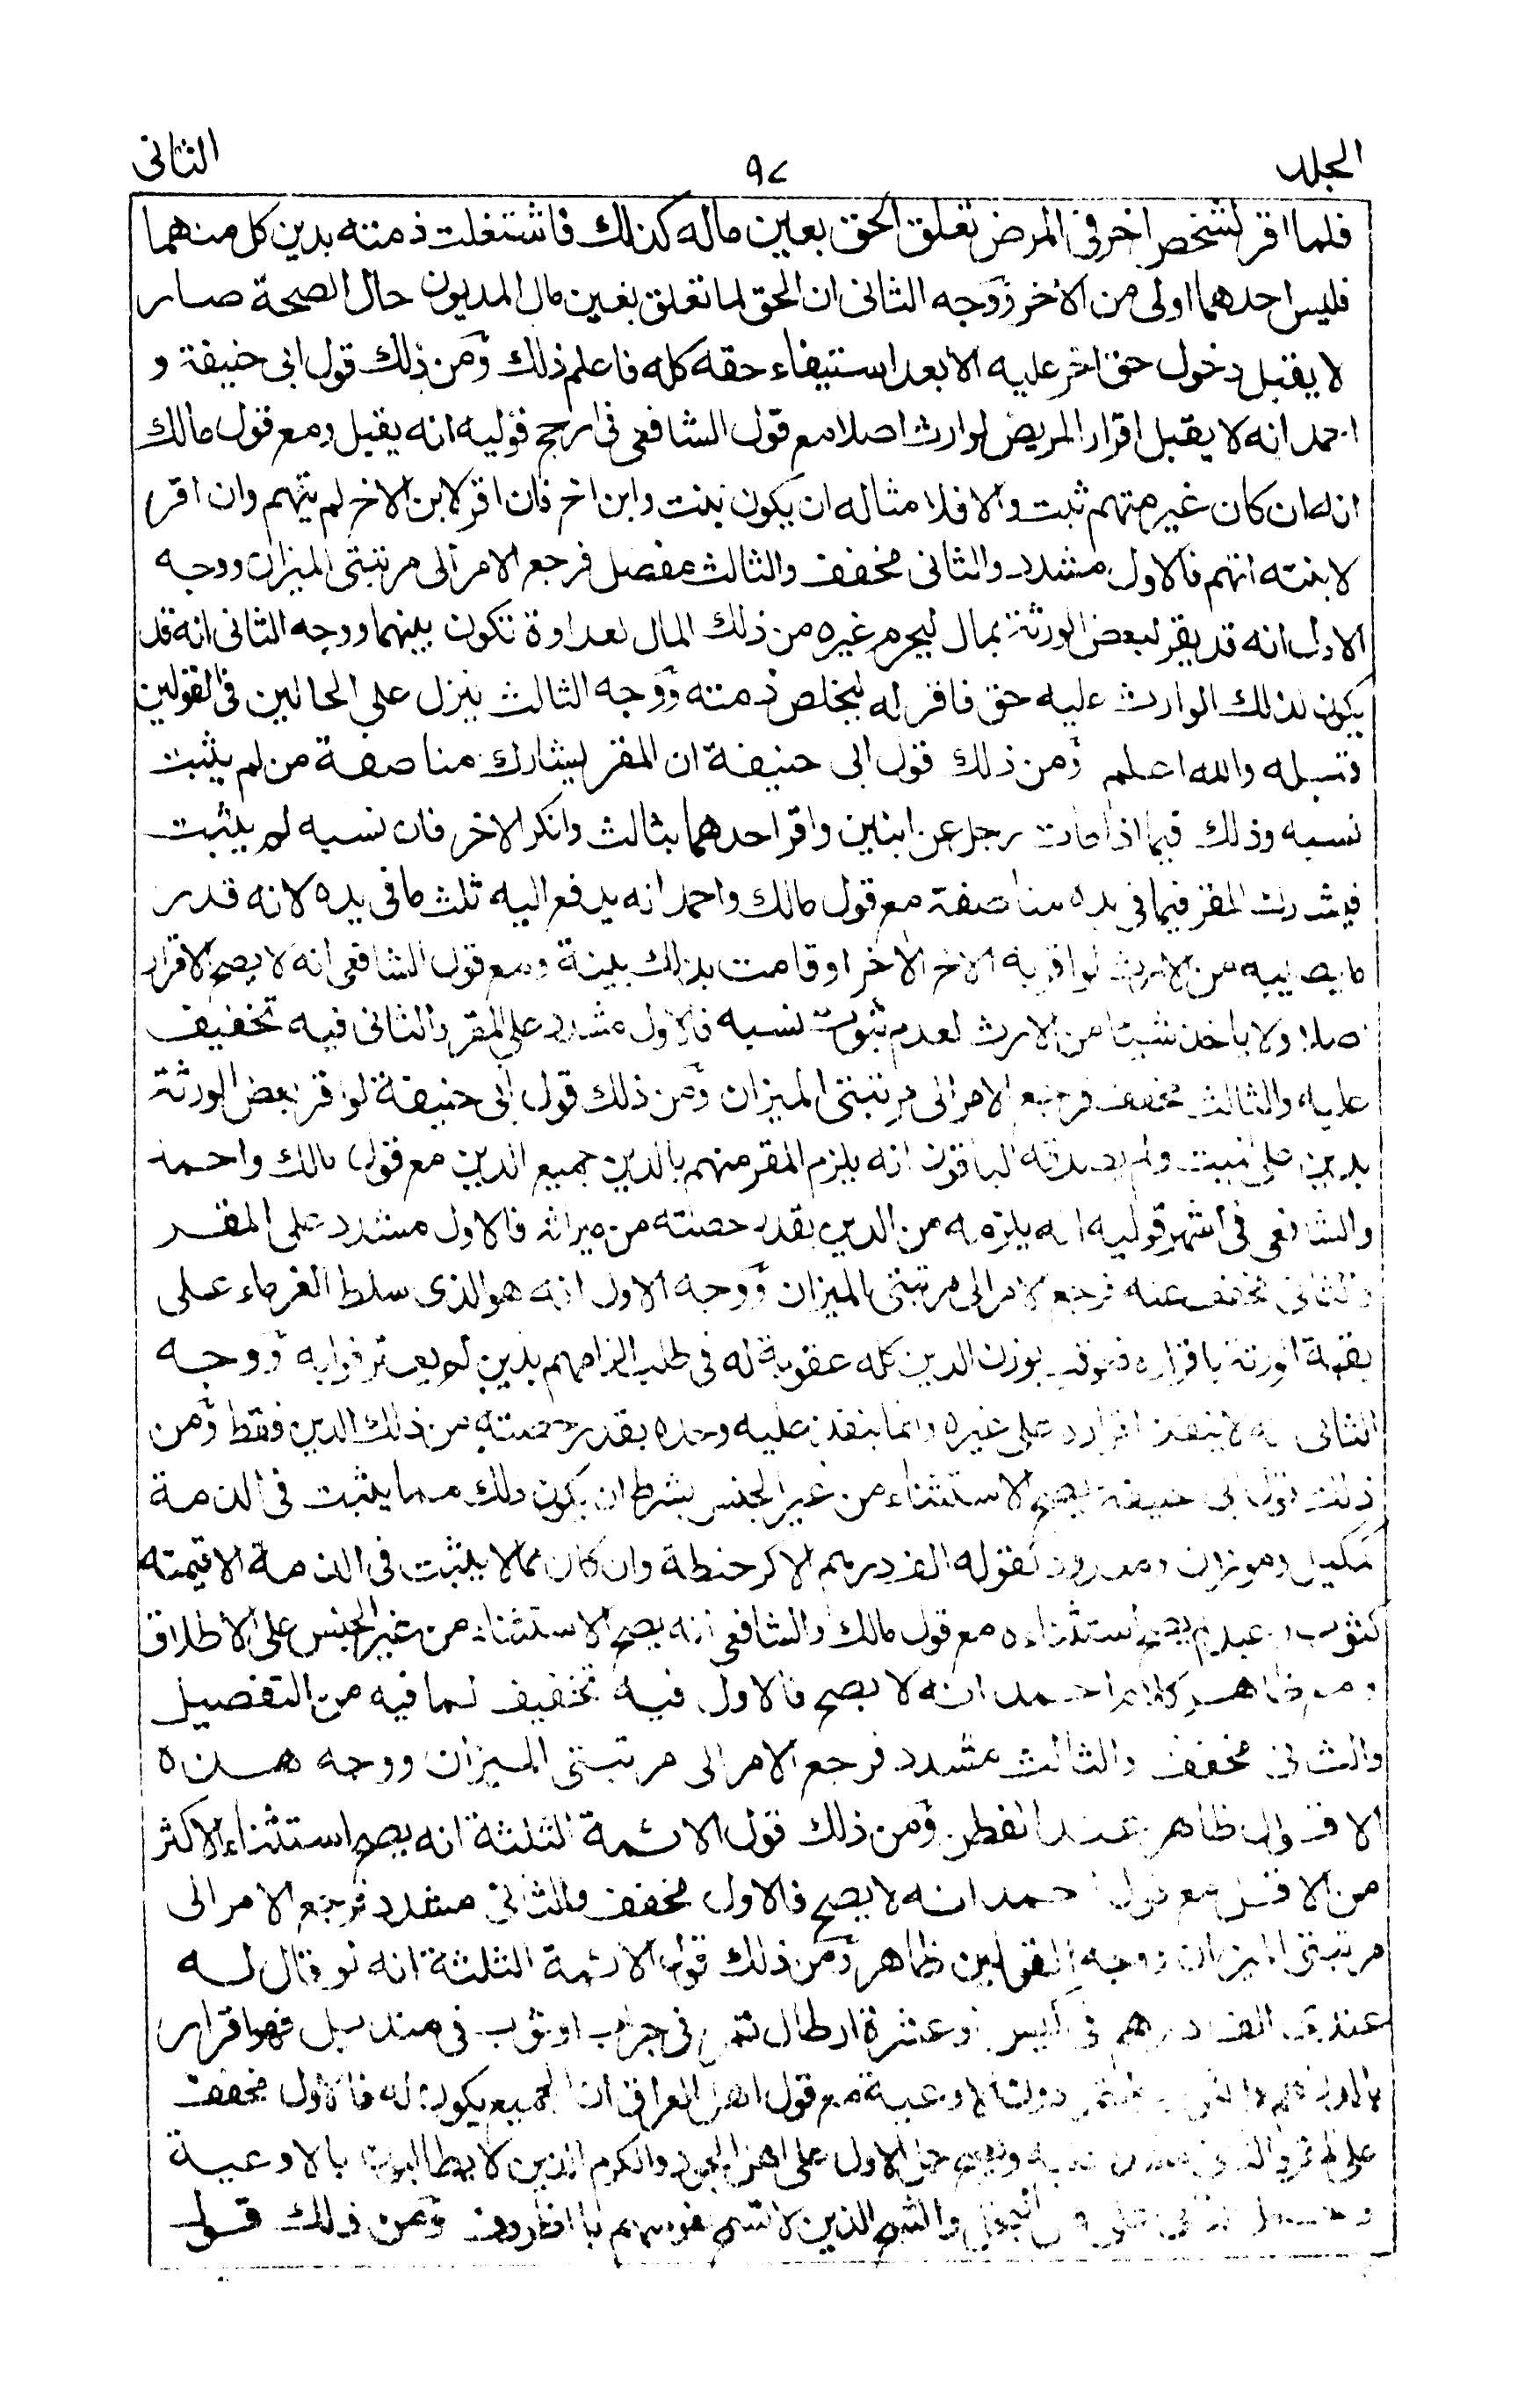 الجلد
٩٢
الثانى
فلما اقر لشخص اخر فى المرض تعلق الحق بعين ماله كذلك فاشتغلت ذمته بدين كل منهما
فليس احدهما اولى من الاخر ووجه الثانى ان الحق لما تعلق بعين مال المديون حال الصحة صار
لا يقبل دخول حق اخر عليه الا بعد استيفاء حقه كله فاعلم ذلك ومن ذلك قول ابى حنيفة و
احمد انه لا يقبل اقرار المريض لوارث اصلا مع قول الشافعى فى ارجح قوليه انه يقبل ومع قول مالك
انه ان كان غير متهم ثبت والا فلا مثاله ان يكون بنت وابن اخ فان اقر لابن الاخ لم يتهم وان اقر
لابنته اتهم فالاول مشدد والثانى مخفف والثالث مفصل فرجع الامر الى مرتبتى الميزان ووجه
الاول انه قد يقر لبعض الورثة بمال ليحرم غيره من ذلك المال لعداوة تكون بينهما ووجه الثانى انه قد
يكون لذلك الوارث عليه حق فاقر له ليخلص ذمته ووجه الثالث ينزل على الحالين فى القولين
قبله والله اعلم ومن ذلك قول ابى حنيفة ان المقر يشارك مناصفة من لم يثبت
نسبه وذلك فيما اذا مات رجل عن ابنين واقر احدهما بثالث وانكر الاخر فان نسبه لم يثبت
فيشارك المقر فيما فى يده مناصفة مع قول مالك واحمد انه يدفع اليه ثلث ما فى يده لانه قدر
ما يصيبه من الارث لو اقر به الاخ الاخر او قامت بذلك بينة ومع قول الشافعى انه لا يصح الاقرار
اصلا ولا ياخذ شيئا من الارث لعدم ثبوت نسبه فالاول مشدد على المقر والثانى فيه تخفيف
عليه والثالث مخفف فرجع الامر الى مرتبتى الميزان ومن ذلك قول ابى حنيفة لو اقر بعض الورثة
بدين على الميت ولم يصدقه الباقون انه يلزم المقر منهم بالدين جميع الدين مع قول مالك واحمد
والشافعى فى اشهر قوليه انه يلزمه من الدين بقدر حصته من ميراثه فالاول مشدد على المقر
والثانى مخفف عنه فرجع الامر الى مرتبتى الميزان ووجه الاول انه هو الذى سلط الغرماء على
بقية الورثة باقراره فعوقب بوزن الدين كله عقوبة له فى طلب الزامهم بدين لم يعترفوا به ووجه
الثانى انه لا ينفذ اقراره على غيره وانما ينفذ عليه وحده بقدر حصته من ذلك الدين فقط ومن
ذلك قول ابى حنيفة يصح الاستثناء من غير الجنس بشرط ان يكون ذلك مما يثبت فى الذمة
كمكيل وموزون ومعدود كقوله الف درهم الا كر حنطة وان كان مما لا يثبت فى الذمة الا قيمته
كثوب وعبد لم يصح استثناءه مع قول مالك والشافعى انه يصح الاستثناء من غير الجنس على الاطلاق
ومع ظاهر كلام احمد انه لا يصح فالاول فيه تخفيف لما فيه من التفصيل
والثانى مخفف والثالث مشدد فرجع الامر الى مرتبتى الميزان ووجه هذه
الاقوال ظاهر عند الفطن ومن ذلك قول الائمة الثلثة انه يصح استثناء الاكثر
من الاقل مع قول احمد انه لا يصح فالاول مخفف والثانى مشدد فرجع الامر الى
مرتبتى الميزان ووجه القولين ظاهر ومن ذلك قول الائمة الثلثة انه لو قال له
عندى الف درهم فى كيس او عشرة ارطال تمر فى جراب او ثوب فى منديل فهو اقرار
بالدراهم والتمر دون الاوعية مع قول اهل العراق ان الجميع يكون له فالاول مخفف
على المقر والثانى عليه ويصح حمل الاول على اهل الجود والكرم الذين لا يطالبون بالاوعية
وحمل الثانى على اهل البخل والشح الذين لا تسمح نفوسهم بالظروف ومن ذلك قول